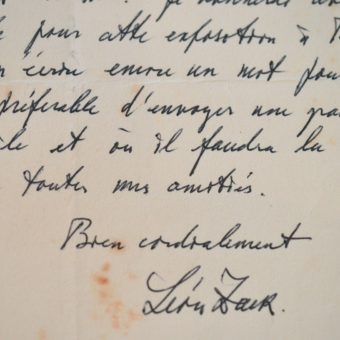 pour cette exposition à
écrire encore un mot pour
préférable d'envoyer une
et où il faudra la
toutes mes amitiés.
Bien cordialement
Léon Zack.